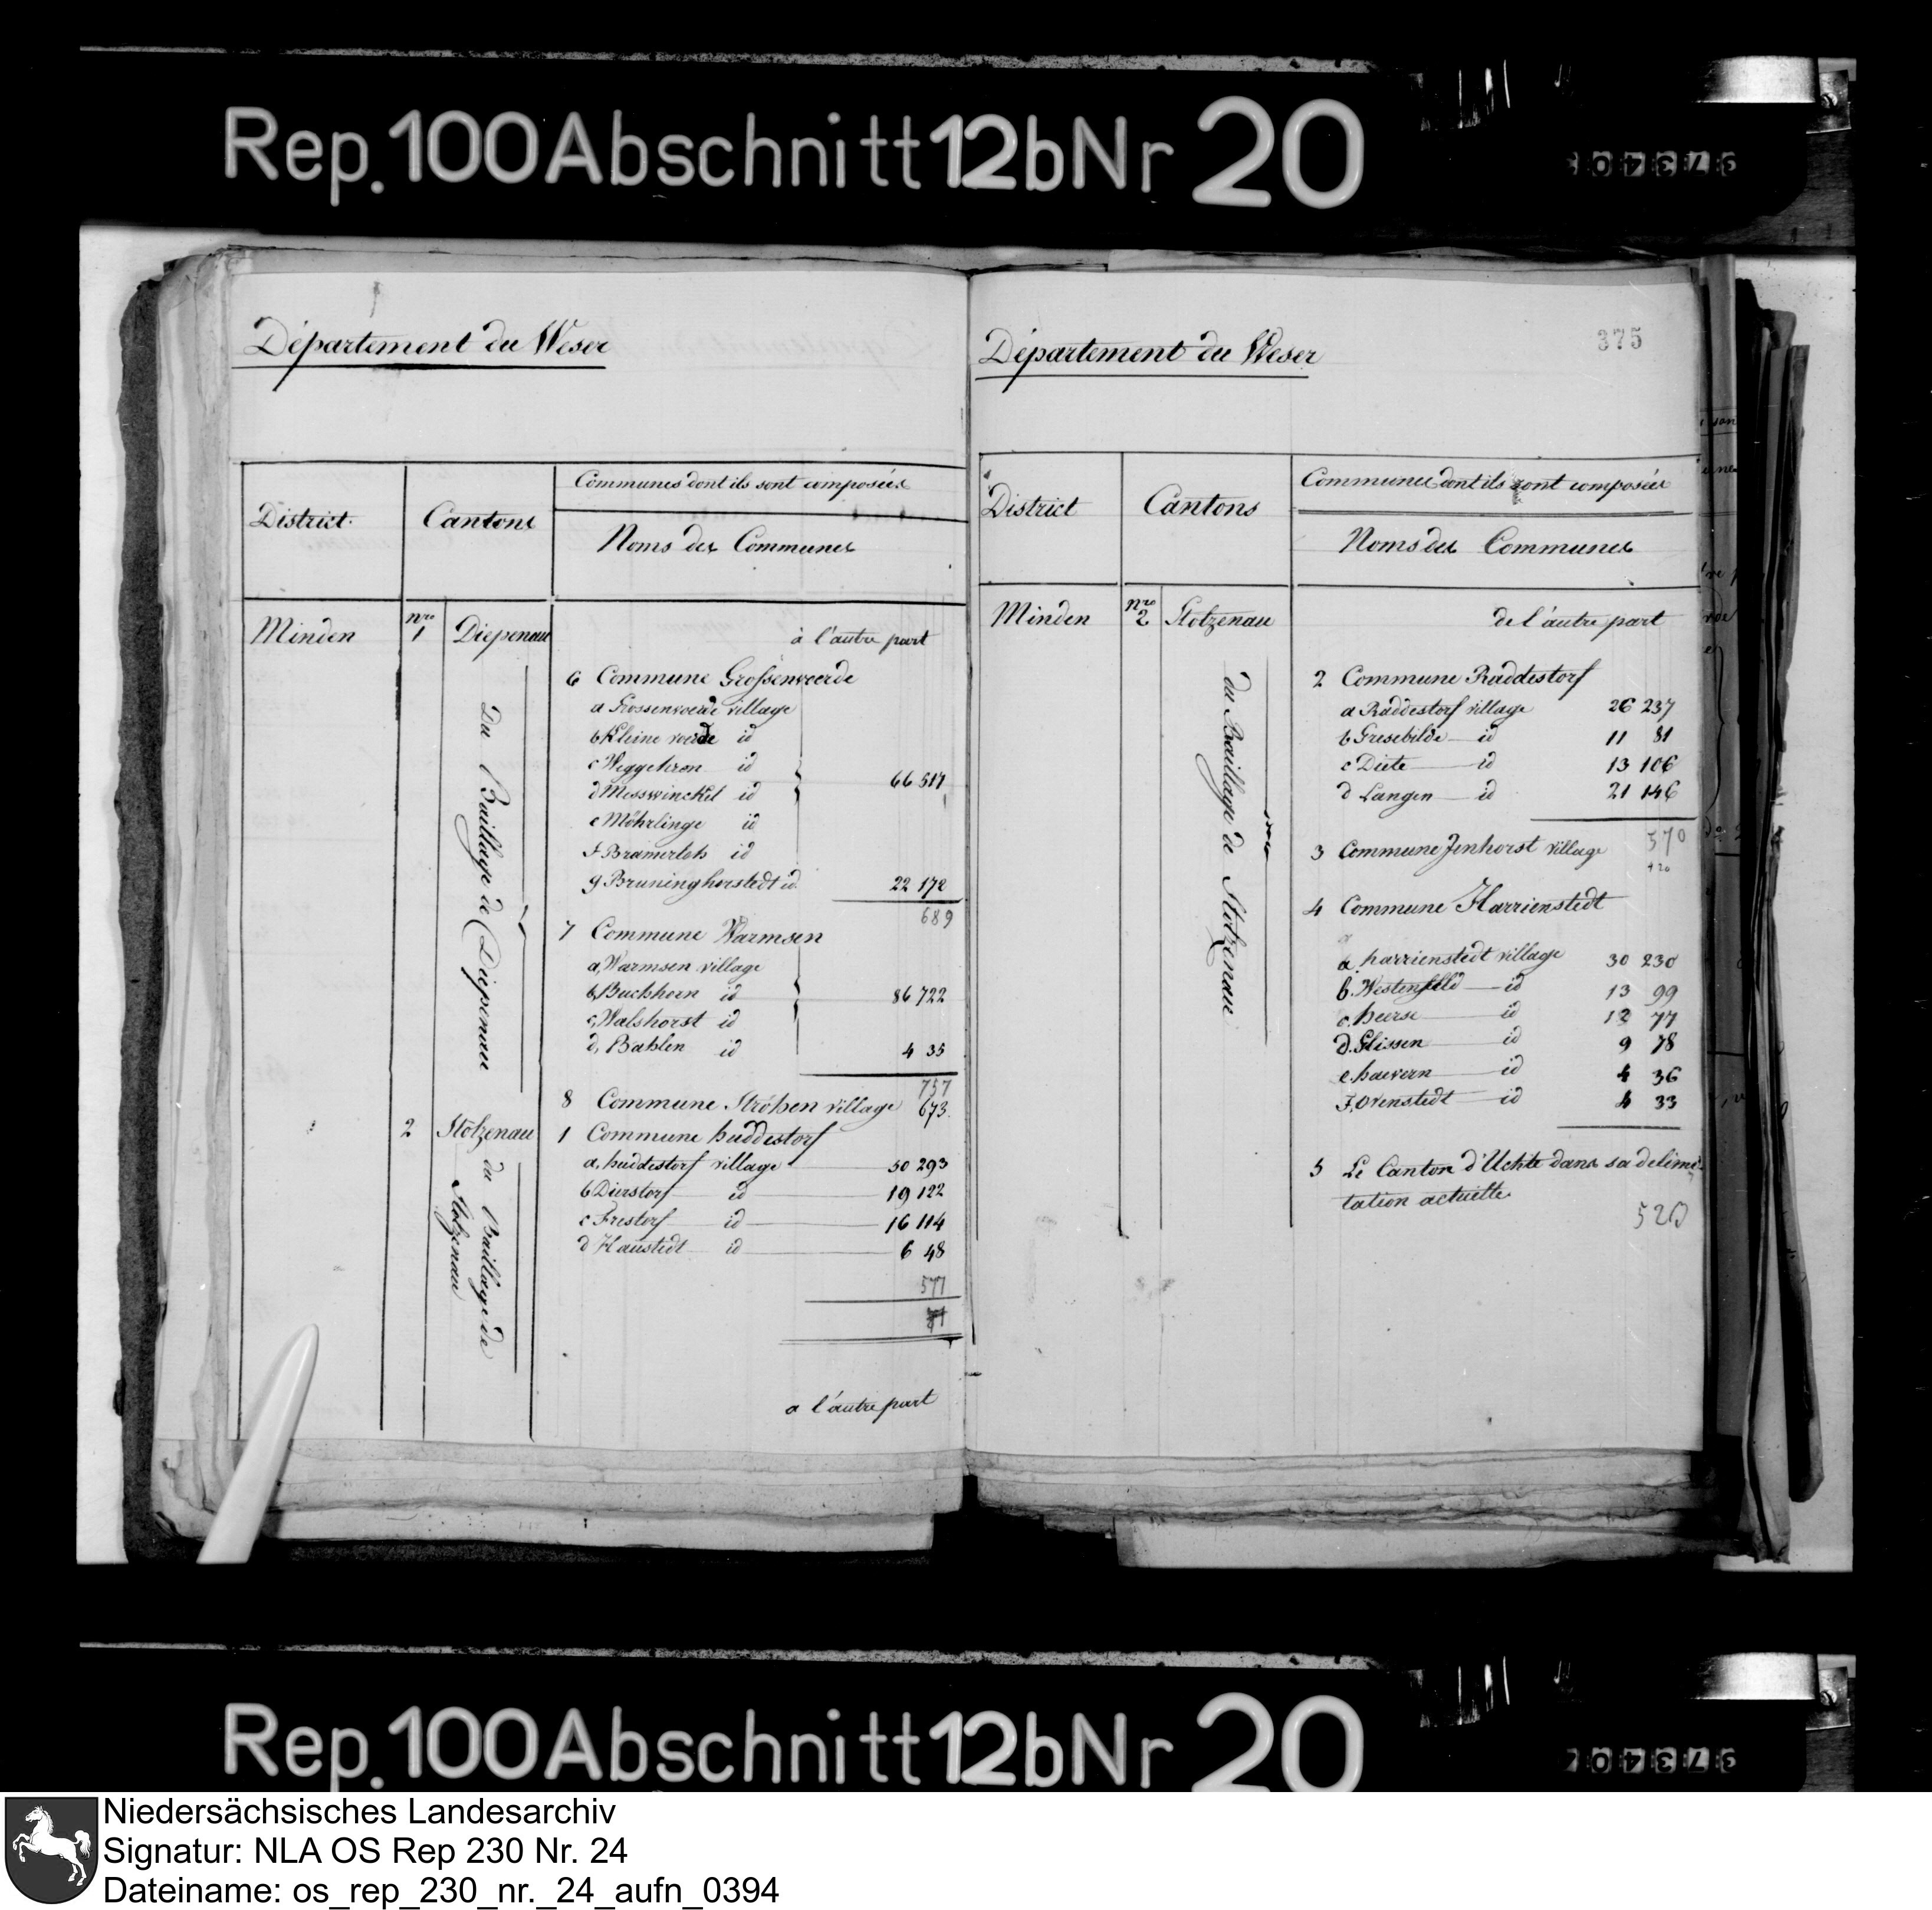 Rep. 100 Abschnitt 12b Nr 20
Département du Weser
District.
Cantons
Communes dont ils sont composées
Noms des Communes
Minden
nro 1
Diepenau
Du Bailliage de Diepenau
à l'autre part
6 Commune Grossenvoerde
a Grossenvoerde village
b Kleine voerde id
c Weggehron id
d Messwinckel id
66 517
e Möhrlinge id
f Bramerloh id
g Bruninghorstedt id 22 172
689
7 Commune Warmsen
a, Warmsen village
b, Buchhorn id
86 722
c, Walshorst id
d, Bahlen id 4 35
757
8 Commune Ströhen village 673
2 Stolzenau
du Bailliage de Stolzenau
1 Commune huddestorf
a, huddestorf village 50 293
b Dierstorf id 19 122
c Frestorf id 16 114
d Haustedt id 6 48
577
a l'autre part
375
Département du Weser
District
Cantons
Communes dont ils sont composées
Noms des Communes
Minden
nro 2
Stolzenau
du Bailliage de Stolzenau
de l'autre part
2 Commune Raddestorf
a Raddestorf village 26 237
b Gresebilde id 11 81
c Diete id 13 106
d Langen id 21 146
570
3 Commune Jenhorst village
+20
4 Commune Harrienstedt
a harrienstedt village 30 230
b. Westenfeld id 13 99
c. heerse id 12 77
d. Glissen id 9 78
e. haevern id 4 36
f, Ovenstedt id 4 33
5 Le Canton d'Uchte dans sa delimi-
tation actuelle
Rep. 100 Abschnitt 12b Nr 20
Niedersächsisches Landesarchiv
Signatur: NLA OS Rep 230 Nr. 24
Dateiname: os_rep_230_nr._24_aufn_0394